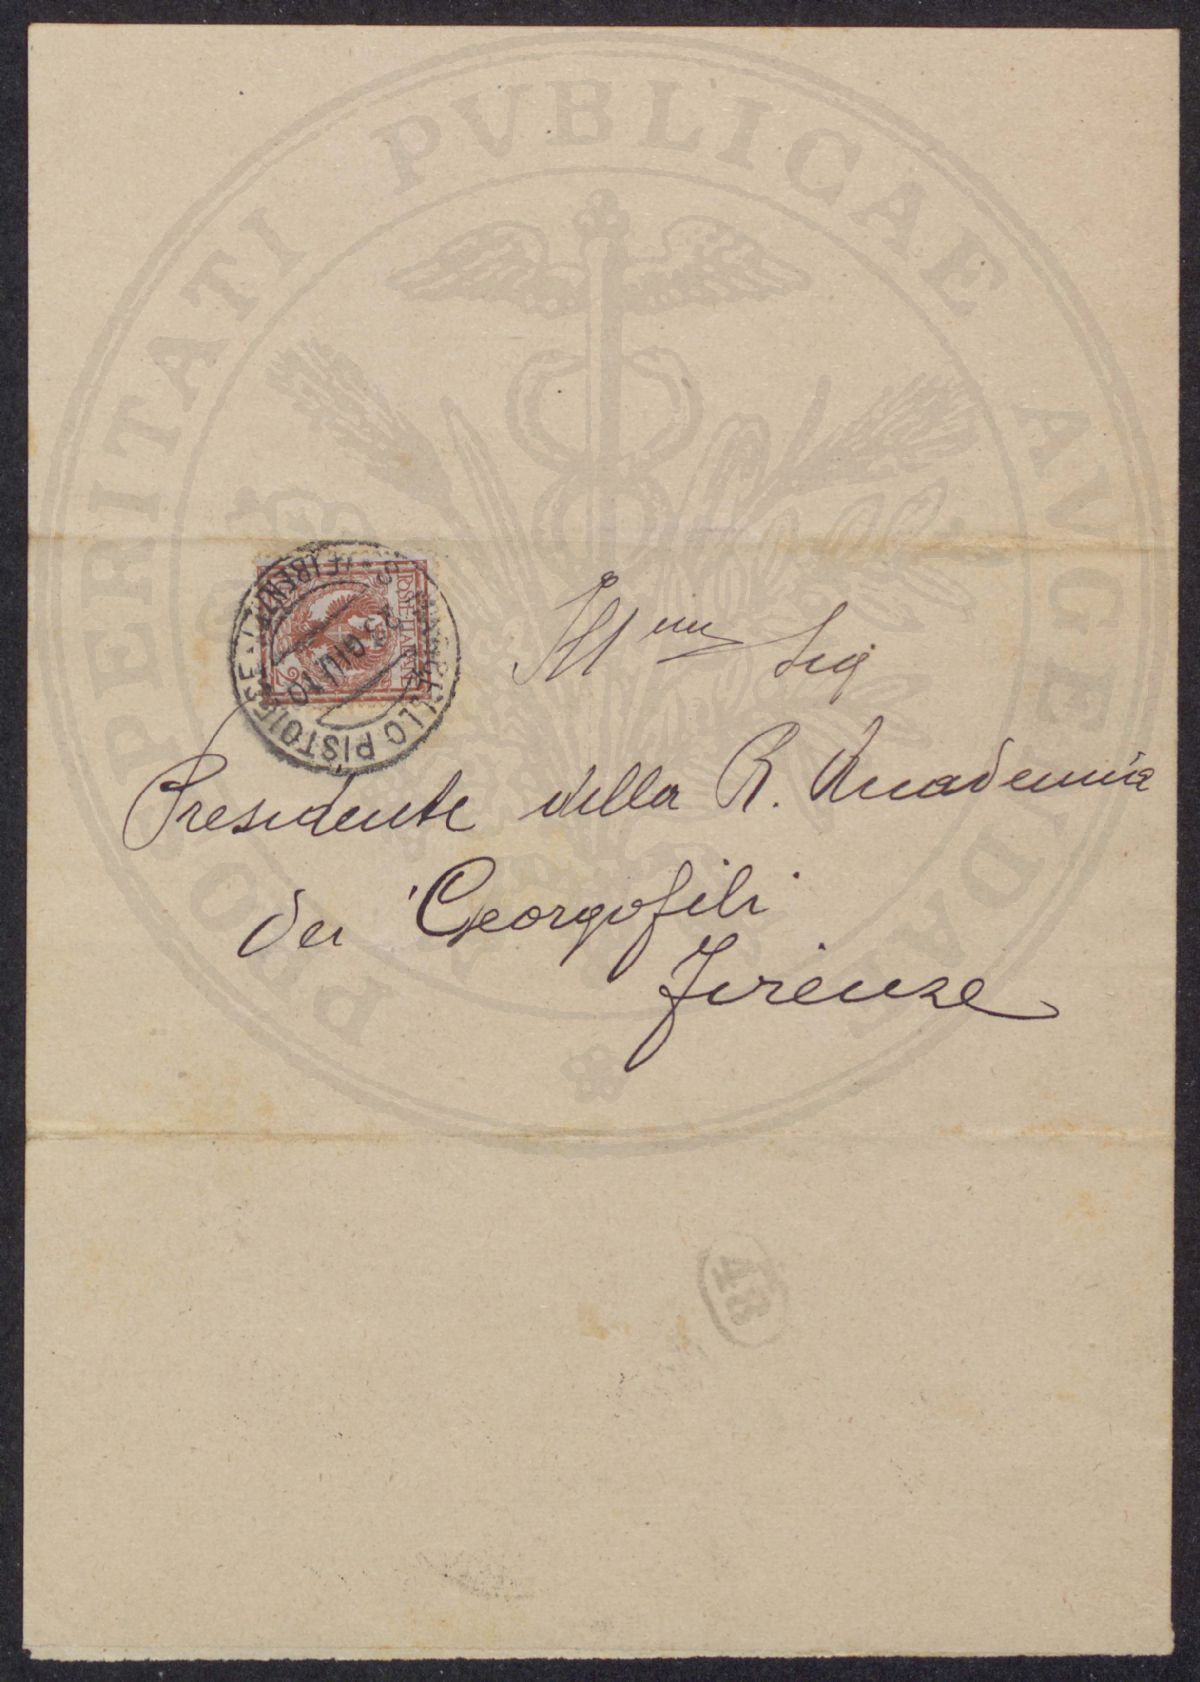 PROSPERITATI PVBLICAE AVGENDAE
POSTE ITALIANE
2
S. MARCELLO PISTOIESE (FIRENZE)
23 GIU 10
Ill mo Sig
Presidente della R. Accademia
dei Georgofili
Firenze
48